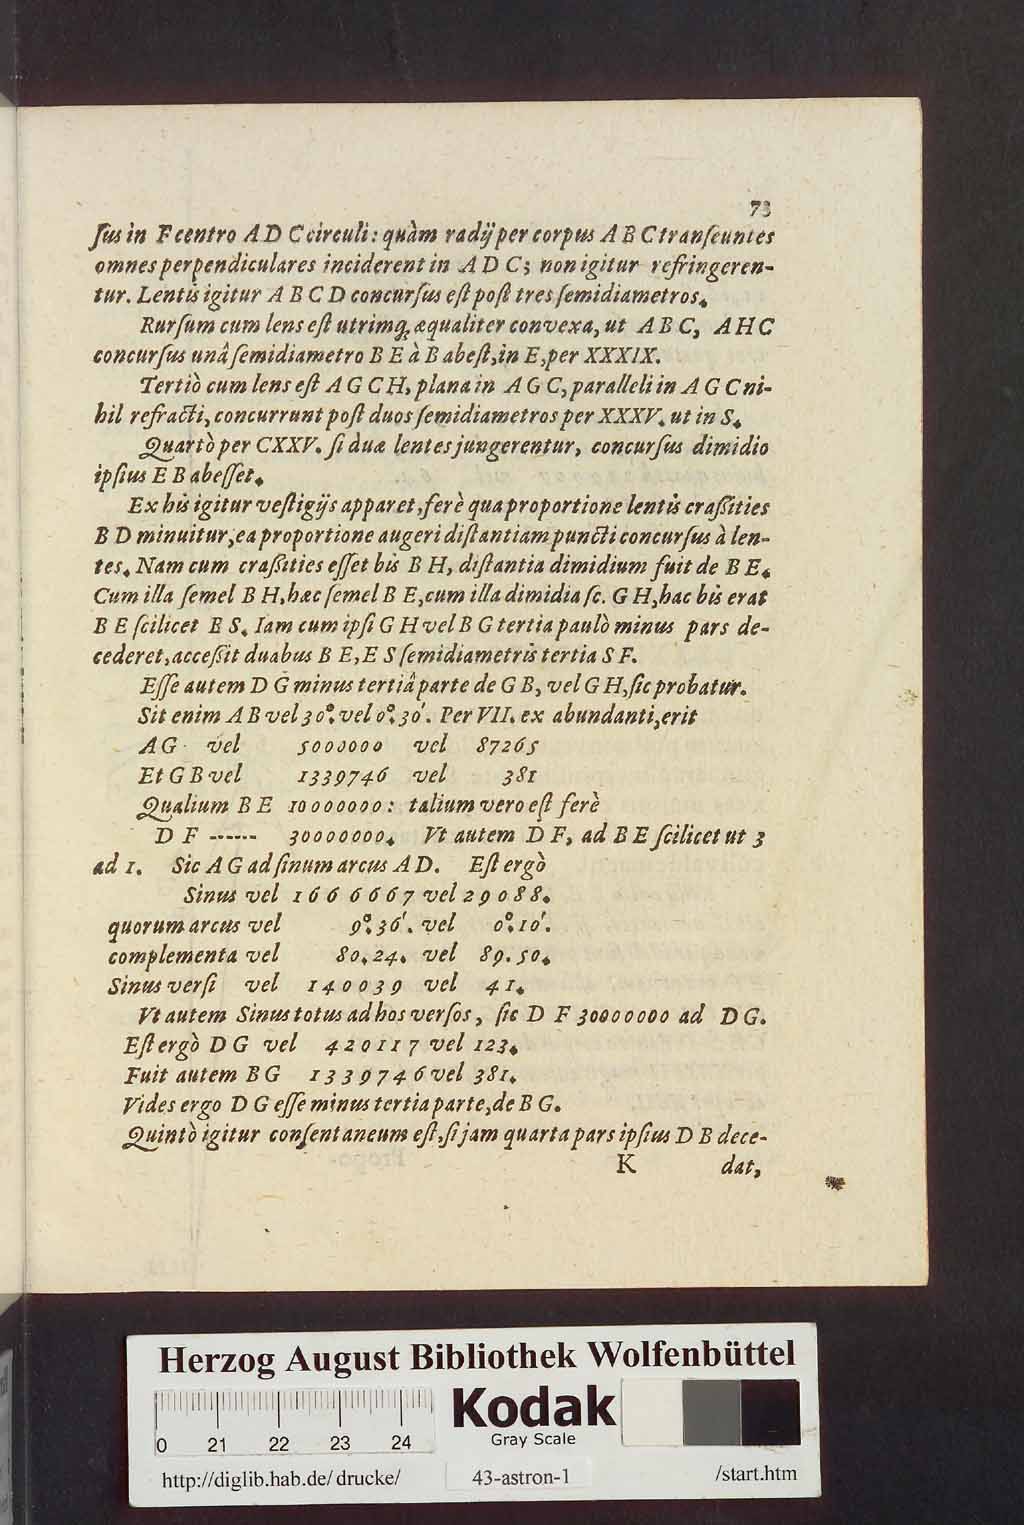 73
ſus in F centro A D C circuli: quàm radij per corpus A B C tranſeuntes
omnes perpendiculares inciderent in A D C; non igitur refringeren-
tur. Lentis igitur A B C D concurſus eſt poſt tres ſemidiametros.
Rurſum cum lens eſt utrimq; æqualiter convexa, ut A B C, A H C
concurſus unâ ſemidiametro B E à B abeſt, in E, per XXXIX.
Tertiò cum lens eſt A G C H, plana in A G C, paralleli in A G C ni-
hil refracti, concurrunt poſt duos ſemidiametros per XXXV. ut in S.
Quartò per CXXV. ſi duæ lentes jungerentur, concurſus dimidio
ipſius E B abeſſet.
Ex his igitur veſtigijs apparet, ferè qua proportione lentis craſſities
B D minuitur, ea proportione augeri diſtantiam puncti concurſus à len-
tes. Nam cum craſſities eſſet bis B H, diſtantia dimidium fuit de B E.
Cum illa ſemel B H, hæc ſemel B E, cum illa dimidia ſc. G H, hac bis erat
B E ſcilicet E S. Iam cum ipſi G H vel B G tertia paulò minus pars de-
cederet, acceſſit duabus B E, E S ſemidiametris tertia S F.
Eſſe autem D G minus tertiâ parte de G B, vel G H, ſic probatur.
Sit enim A B vel 30°. vel 0°. 30'. Per VII. ex abundanti, erit
A G vel 5000000 vel 87265
Et G B vel 1339746 vel 381
Qualium B E 10000000: talium vero eſt ferè
D F ------ 30000000. Vt autem D F, ad B E ſcilicet ut 3
ad 1. Sic A G ad ſinum arcus A D. Eſt ergò
Sinus vel 1666667 vel 29088.
quorum arcus vel 9°. 36'. vel 0°. 10'.
complementa vel 80. 24. vel 89. 50.
Sinus verſi vel 140039 vel 41.
Vt autem Sinus totus ad hos verſos, ſic D F 30000000 ad D G.
Eſt ergò D G vel 420117 vel 123.
Fuit autem B G 1339746 vel 381.
Vides ergo D G eſſe minus tertia parte, de B G.
Quintò igitur conſentaneum eſt, ſi jam quarta pars ipſius D B dece-
K dat,
Herzog August Bibliothek Wolfenbüttel
0 21 22 23 24
Kodak
Gray Scale
http://diglib.hab.de/drucke/ 43-astron-1 /start.htm